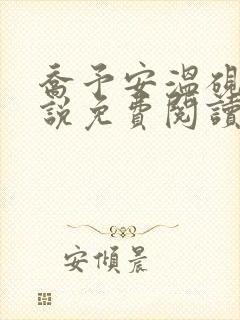 喬予安溫硯
說免費閱讀
安傾晨